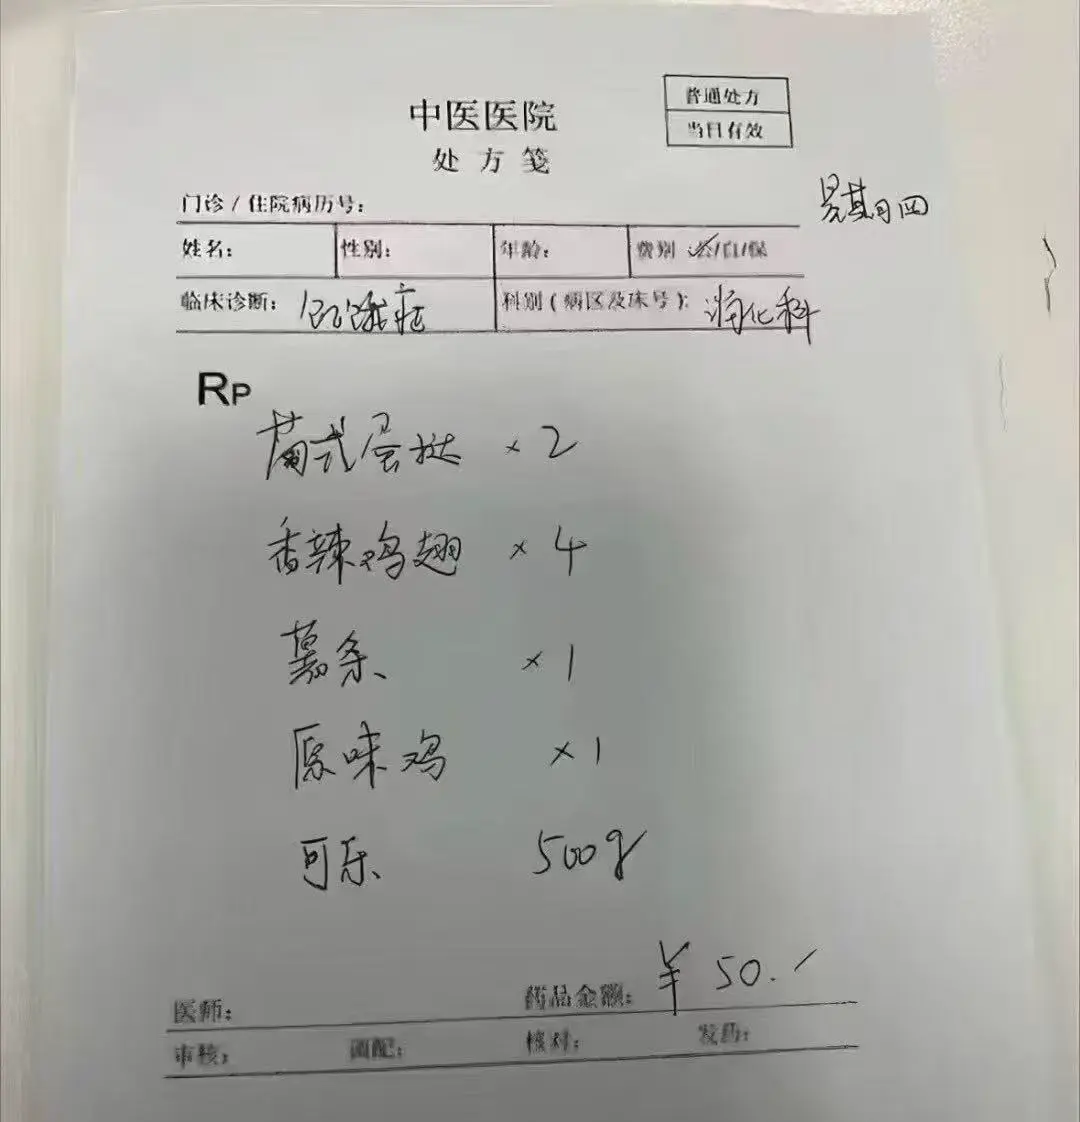 普通处方
当日有效
中医医院
处方笺
门诊/住院病历号:
星期四
姓名: 性别: 年龄: 费别 公/自/保
临床诊断: 饥饿症 科别(病区及床号): 消化科
RP
葡式蛋挞 ×2
香辣鸡翅 ×4
薯条 ×1
原味鸡 ×1
可乐 500g
医师: 药品金额: ¥50.
审核: 调配: 核对: 发药: